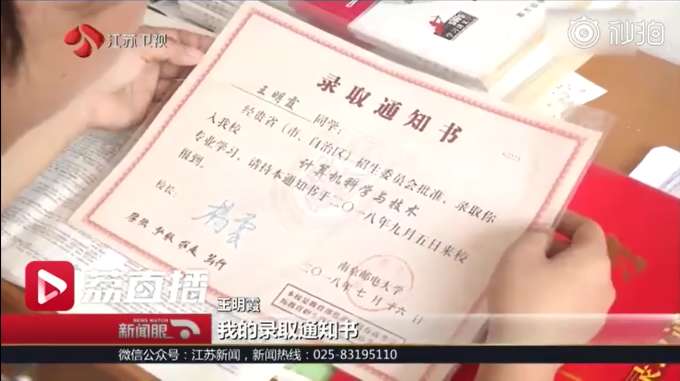 江苏卫视
秒拍
录取通知书
王明霞 同学:
经贵省(市、自治区)招生委员会批准,录取你
入我校 计算机科学与技术
专业学习。请持本通知书于二〇一八年九月五日来校
报到。
校长:
南京邮电大学
二〇一八年七月十六日
荔直播
王明霞
NEWS WATCH
新闻眼
我的录取通知书
微信公众号:江苏新闻,新闻热线:025-83195110